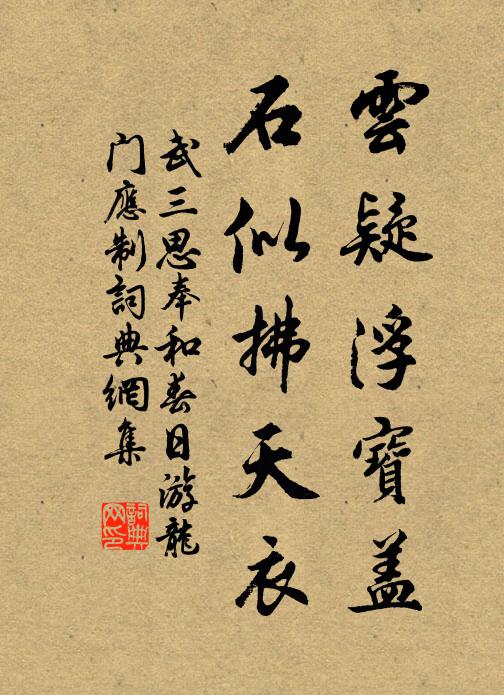 雲疑浮寶蓋
石似拂天衣
武三思奉和春日游龍
门應制詞典網集
詞典
网印